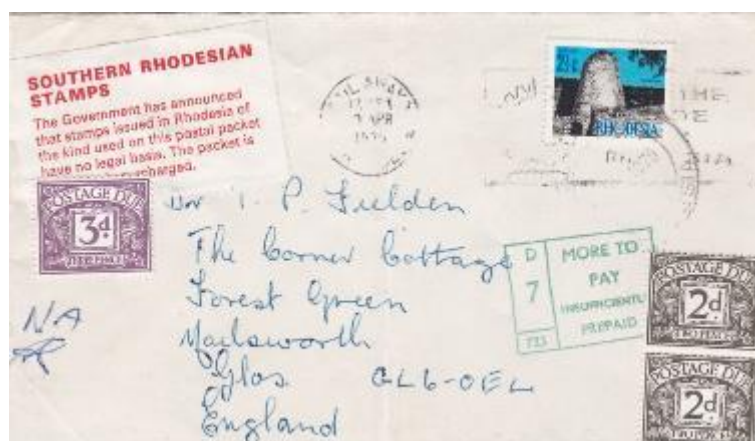 SOUTHERN RHODESIAN
STAMPS
The Government has announced
that stamps issued in Rhodesia of
the kind used on this postal packet
have no legal basis. The packet is
surcharged.
POSTAGE DUE
3d.
THREE PENCE
2½c
RHODESIA
APR
THE
P. Fielden
The Corner Cottage
Forest Green
Nailsworth
Glos GL6-0EL
England
NA
D
7
733
MORE TO
PAY
INSUFFICIENTLY
PREPAID
POSTAGE DUE
2d.
TWO PENCE
POSTAGE DUE
2d.
TWO PENCE